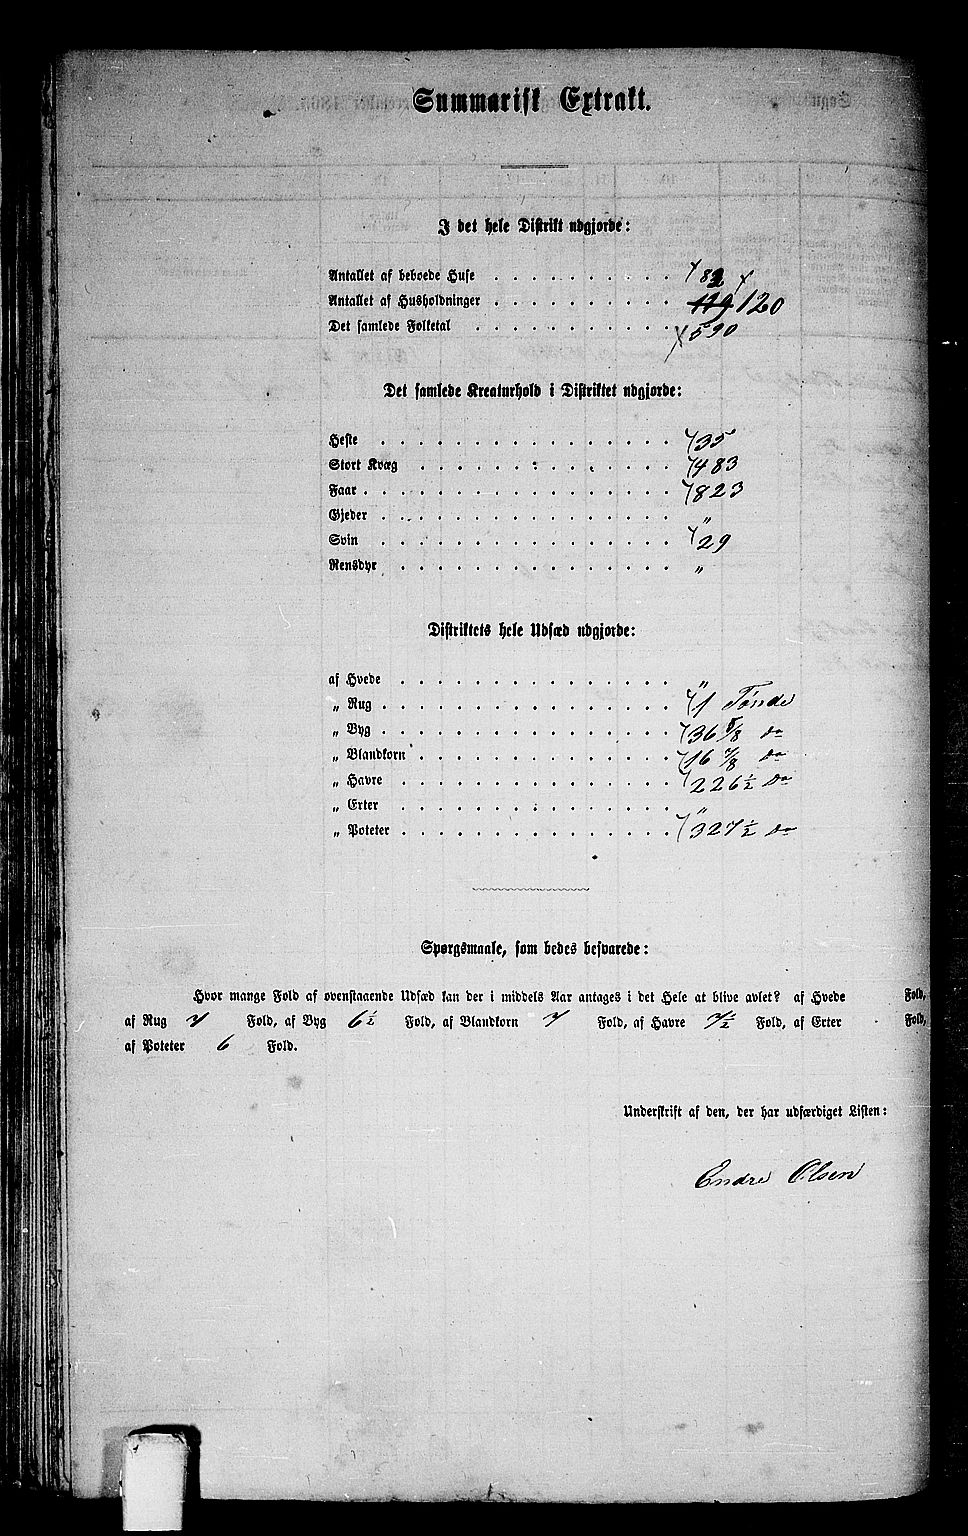 Summarisk Extrakt.
I det hele Distrikt udgjorde:
Antallet af beboede Huse . . . . . . . . . . 82
Antallet af Husholdninger . . . . . . . . . . 119 120
Det samlede Folketal . . . . . . . . . . . 590
Det samlede Kreaturhold i Distriktet udgjorde:
Heste . . . . . . . . . . . . . . . . 35
Stort Kvæg . . . . . . . . . . . . . . 483
Faar . . . . . . . . . . . . . . . . . 823
Gjeder . . . . . . . . . . . . . . . . "
Svin . . . . . . . . . . . . . . . . 29
Rensdyr . . . . . . . . . . . . . . . "
Distriktets hele Udsæd udgjorde:
af Hvede . . . . . . . . . . . . . . . "
„ Rug . . . . . . . . . . . . . . . . 1 Tønde
„ Byg . . . . . . . . . . . . . . . . 36 5/8 do
„ Blandkorn . . . . . . . . . . . . . . 16 7/8 do
„ Havre . . . . . . . . . . . . . . . 226 1/2 do
„ Erter . . . . . . . . . . . . . . . "
„ Poteter . . . . . . . . . . . . . . . 327 1/2 do
Spørgsmaale, som bedes besvarede:
Hvor mange Fold af ovenstaaende Udsæd kan der i middels Aar antages i det Hele at blive avlet? af Hvede Fold,
af Rug 7 Fold, af Byg 6 1/2 Fold, af Blandkorn 7 Fold, af Havre 7 1/2 Fold, af Erter Fold,
af Poteter 6 Fold.
Underskrift af den, der har udfærdiget Listen:
Endre Olsen